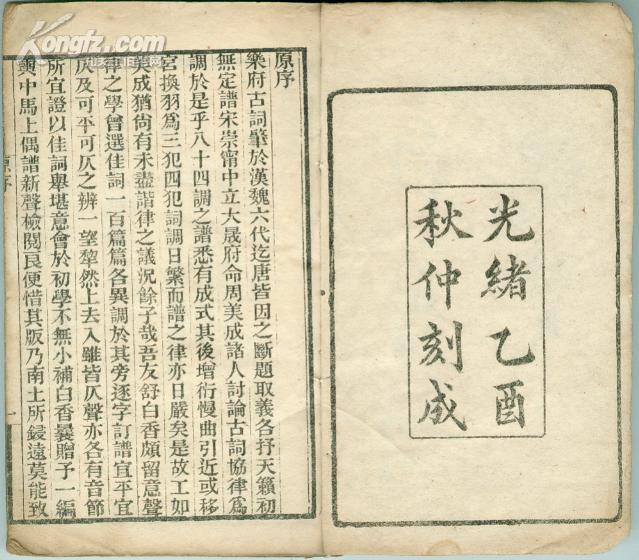 光緒乙酉
秋仲刻成
原序
樂府古詞肇於漢魏六代迄唐皆因之斷題取義各抒天籟初
無定譜宋崇甯中立大晟府命周美成諸人討論古詞協律爲
調於是乎八十四調之譜悉有成式其後增衍慢曲引近或移
宮換羽爲三犯四犯詞調日繁而譜之律亦日嚴矣是故工如
美成猶尙有未盡諧律之議況餘子哉吾友舒白香頗留意聲
律之學曾選佳詞一百篇篇各異調於其旁逐字訂譜宜平宜
仄及可平可仄之辨一望犂然上去入雖皆仄聲亦各有音節
所宜證以佳詞舉堪意會於初學不無小補白香曩贈予一編
輿中馬上偶譜新聲檢閱良便惜其版乃南土所鋟遠莫能致
原序
一
Kongfz.com